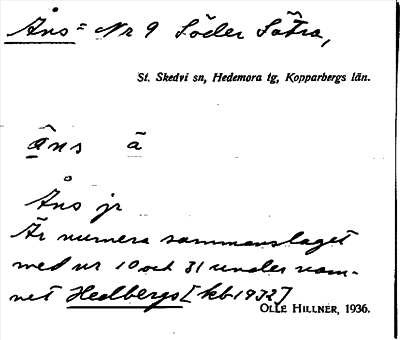 Åns = Nr 9 Söder Sätra,
St. Skedvi sn, Hedemora tg, Kopparbergs län.
å̂ns ā
Åns jr
Är numera sammanslaget
med nr 10 och 31 under nam-
net Hedbergs [kb 1932]
OLLE HILLNER, 1936.